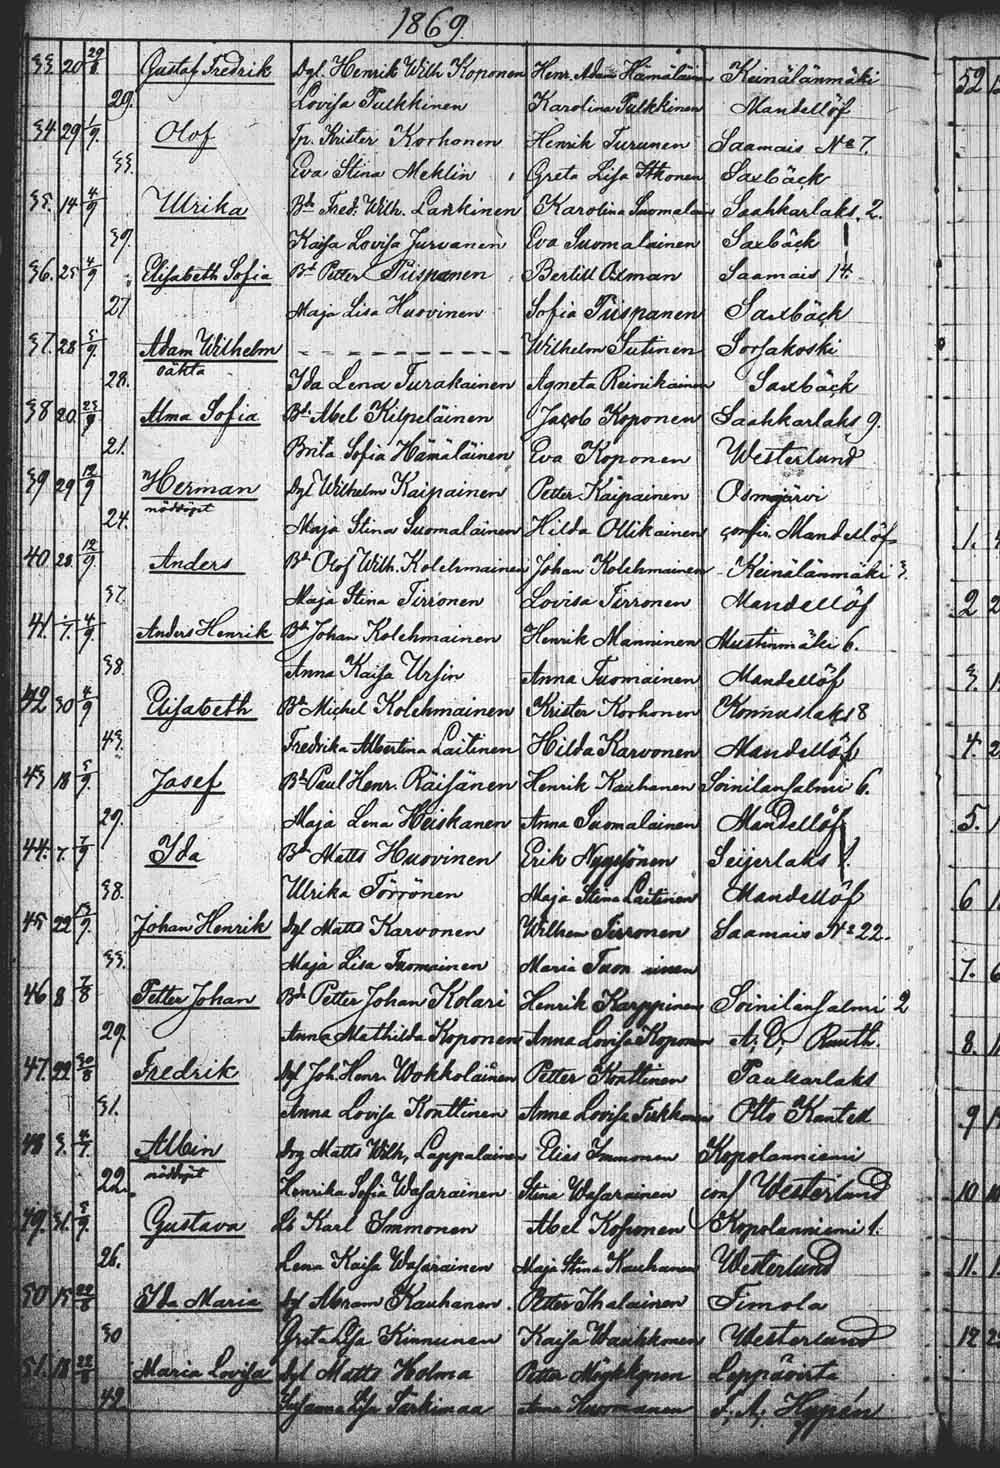 1869.
33 20 29/8 Gustaf Fredrik Dgl. Henrik Wilh Koponen Henr. Adam Hämäläinen Keinälänmäki
29. Lovisa Pulkkinen Karolina Pulkkinen Mandellöf
34 29 1/9. Olof Tp. Krister Korhonen Henrik Turunen Saamais No 7.
33. Eva Stina Mehlin Greta Lisa Itkonen Saxbäck
35. 14 4/9 Ulrika Bd Fred. Wilh. Lankinen Karolina Suomalainen Saahkarlaks. 2.
39. Kaisa Lovisa Jurvanen Eva Suomalainen Saxbäck
36. 25 4/9 Elisabeth Sofia Bd Petter Piispanen Bertill Oxman Saamais 14.
27 Maja Lisa Huovinen Sofia Piispanen Saxbäck
37. 28 5/9. Adam Wilhelm Wilhelm Sutinen Sorsakoski
oäkta
28. Ida Lena Turakainen Agneta Reinikainen Saxbäck
38 20. 23/9 Alma Sofia Bd Abel Kilpeläinen Jacob Koponen Saahkarlaks 9.
21. Brita Sofia Hämäläinen Eva Koponen Westerlund
39 29 12/9 Herman Dgl Wilhelm Kaipainen Petter Kaipainen Osmajärvi
nöddöpt
24. Maja Stina Suomalainen Hilda Ollikainen confir. Mandellöf
40 28. 12/9 Anders Bd Olof Wilh. Kolehmainen Johan Kolehmainen Keinälänmäki 3.
37. Maja Stina Tirronen Lovisa Tirronen Mandellöf
41. 7. 4/9. Anders Henrik Bd Johan Kolehmainen Henrik Manninen Mustinmäki 6.
38. Anna Kaisa Ursin Anna Tuomainen Mandellöf
42 30 4/9 Elisabeth Bd Michel Kolehmainen Krister Korhonen Konnuslaks 8
43. Fredrika Albertina Laitinen Hilda Karvonen Mandellöf
43 18 5/9. Josef Bd Paul Henr. Räisänen Henrik Kauhanen Soinilansalmi 6.
29. Maja Lena Heiskanen Anna Suomalainen Mandellöf
44. 7. 7/9 Ida Bd Matts Huovinen Erik Nyyssönen Seijerlaks 1.
38. Ulrika Törrönen Maja Stina Laitinen Mandellöf
45 22 /9. Johan Henrik Dgl Matts Karvonen Wilhem Tirronen Saamais No 22.
33. Maja Lisa Tuomainen Maria Tuomainen
46 8 7/8 Petter Johan Bd Petter Johan Kolari Henrik Karppinen Soinilansalmi 2
29. Anna Mathilda Koponen Anna Lovisa Koponen A. D. Ruuth.
47. 22 30/8 Fredrik Dgl Joh. Henr. Wokkolainen Petter Konttinen Paukarlaks
31. Anna Lovisa Konttinen Anna Lovisa Otto Kantell
48 3. 4/7. Albin Drg Matts Wilh. Lappalainen Elies Immonen Kopolanniemi
nöddöpt
22. Henrika Sofia Wasarainen Stina Wasarainen conf Westerlund
49. 31. 5/9. Gustava Ls Karl Immonen Abel Koponen Kopolanniemi 1.
26. Lena Kaisa Wasarainen Maja Stina Kauhanen Westerlund
50 15 22/8 Ida Maria Dgl Abram Kauhanen Petter Ihalainen Timola
30 Greta Lisa Kinnunen Kaisa Waukkonen Westerlund
51. 18 22/8 Maria Lovisa Dgl Matts Holma Petter Mökkönen Leppävirta
42. Susanna Lisa Särkimaa Anna Huomanen F. A. Hypén
52
1.
2
3.
4.
5.
6
7.
8.
9
10
11.
12